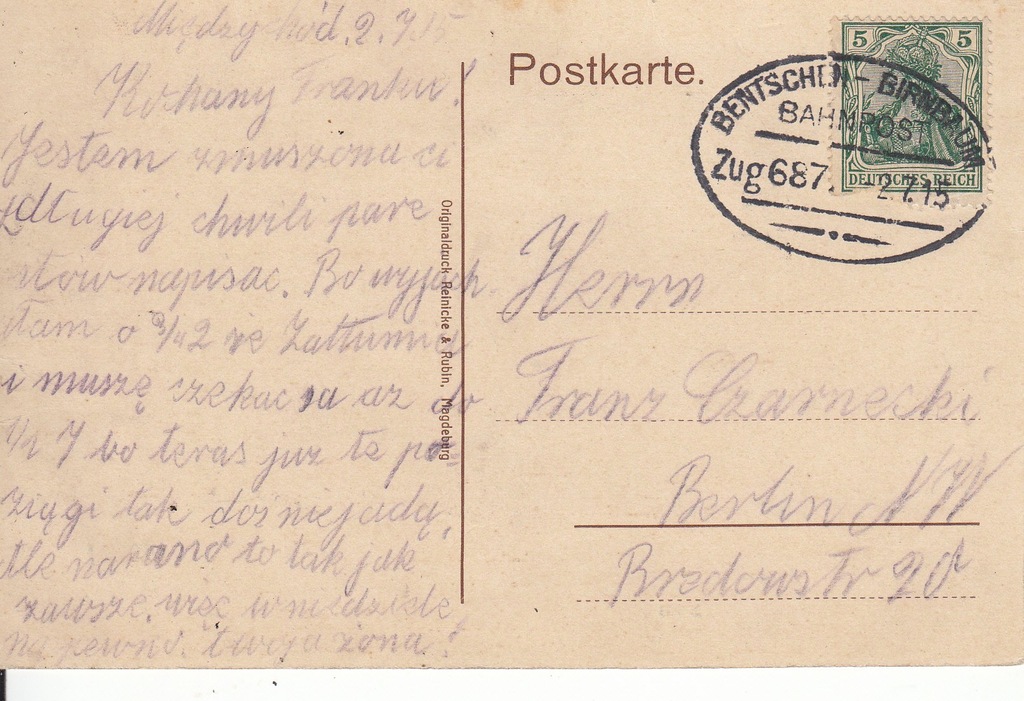 Międzychód. 2.7.15
Kohany Franku!
Jestem zmuszona ci
z długiej chwili pare
stów napisac. Bo wyjech
tam o 3/42 ve Zattumie
i muszę czekac sa az do
1/2 7 bo teras juz te po
ziągi tak doś niejadą,
Ale narano to tak jak
zawsze. więc w niedziele
na pewno. twoja żona!
Originaldruck Reinicke & Rubin, Magdeburg
Postkarte.
BENTSCHEN - BIRNBAUM
BAHNPOST
Zug 687. - 2.7.15
5 5
DEUTSCHES REICH
Herrn
Franz Czarnecki
Berlin NW
Bredowstr 20